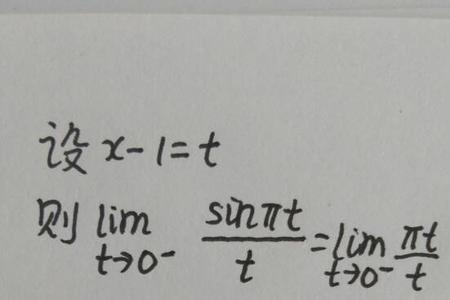 设 x-1=t
则 lim t→0⁻ sinπt/t = lim t→0⁻ πt/t